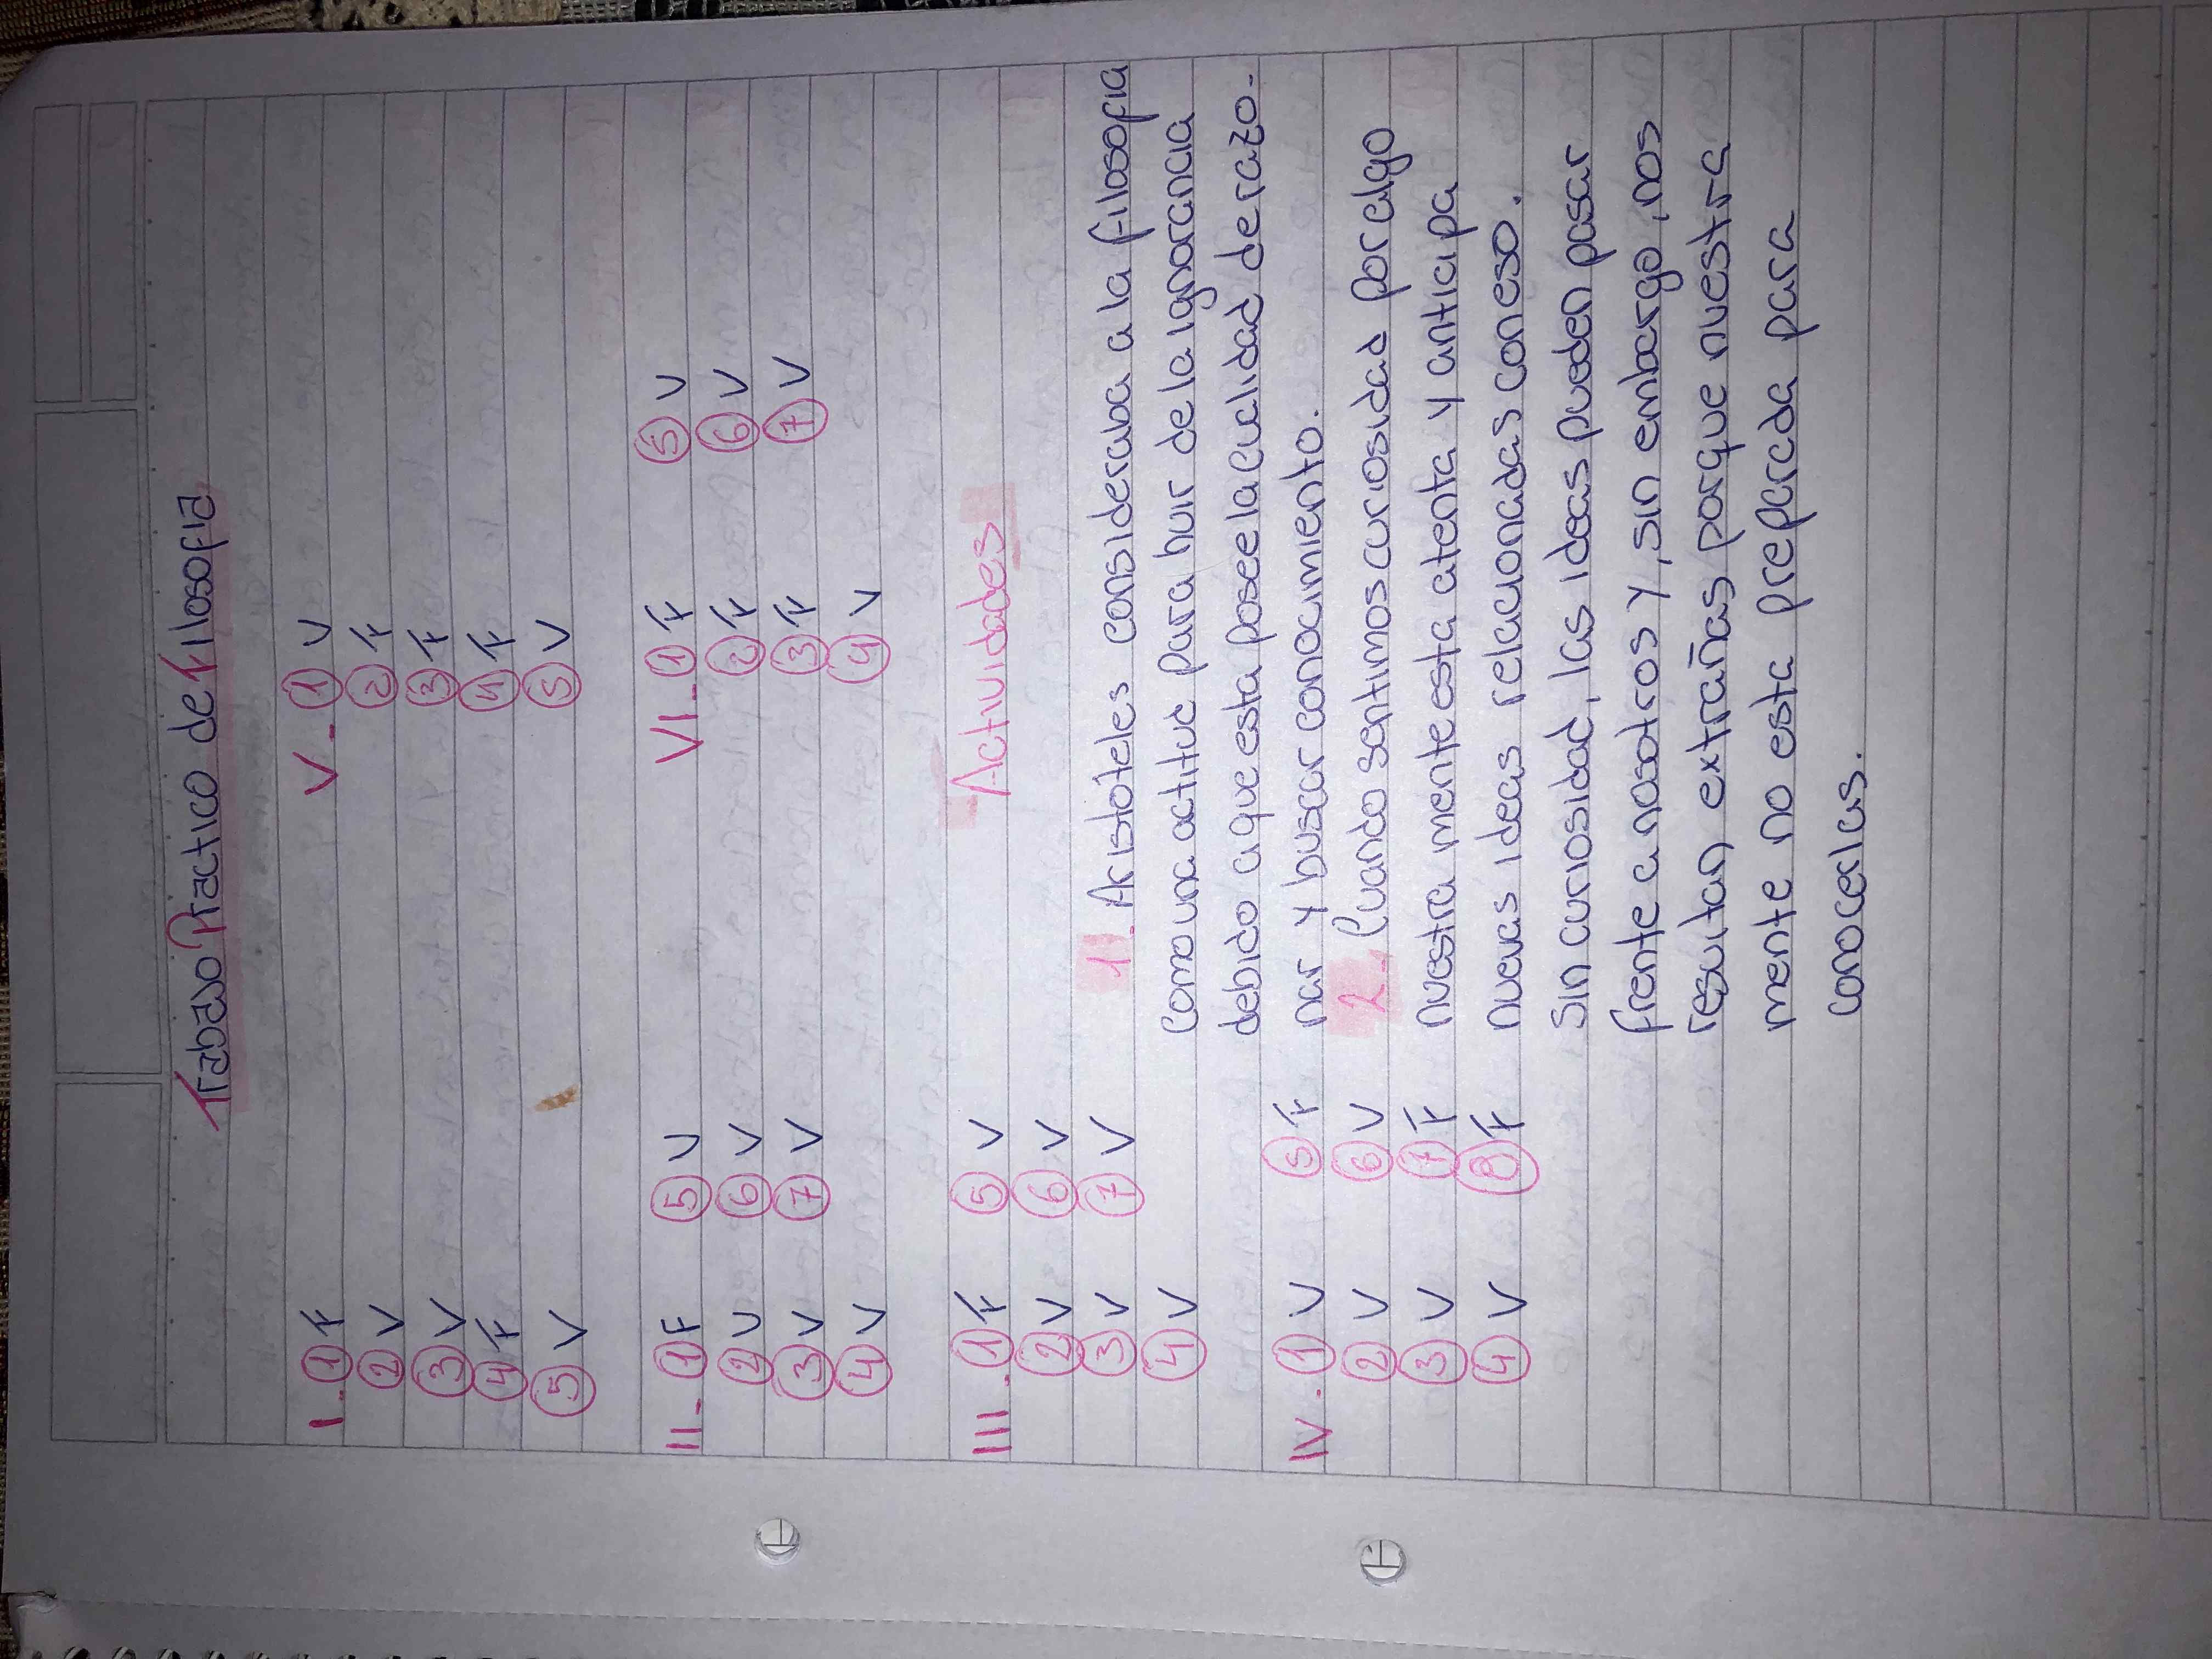 Trabajo Practico de Filosofia
I. ① F
② V
③ V
④ F
⑤ V
II- ① F ⑤ V
② V ⑥ V
③ V ⑦ V
④ V
III. ① F ⑤ V
② V ⑥ V
③ V ⑦ V
④ V
IV. ① V ⑤ F
② V ⑥ V
③ V ⑦ F
④ V ⑧ F
V- ① V
② F
③ F
④ F
⑤ V
VI- ① F ⑤ V
② F ⑥ V
③ F ⑦ V
④ V
Actividades
1. Aristóteles consideraba a la filosofia
como una actitud para huir de la ignorancia
debido a que esta posee la cualidad de razo-
nar y buscar conocimiento.
2. Cuando sentimos curiosidad por algo
nuestra mente esta atenta y anticipa
nuevas ideas relacionadas con eso.
Sin curiosidad, las ideas pueden pasar
frente a nosotros y, sin embargo, nos
resultan extrañas porque nuestra
mente no esta preparada para
conocerlas.